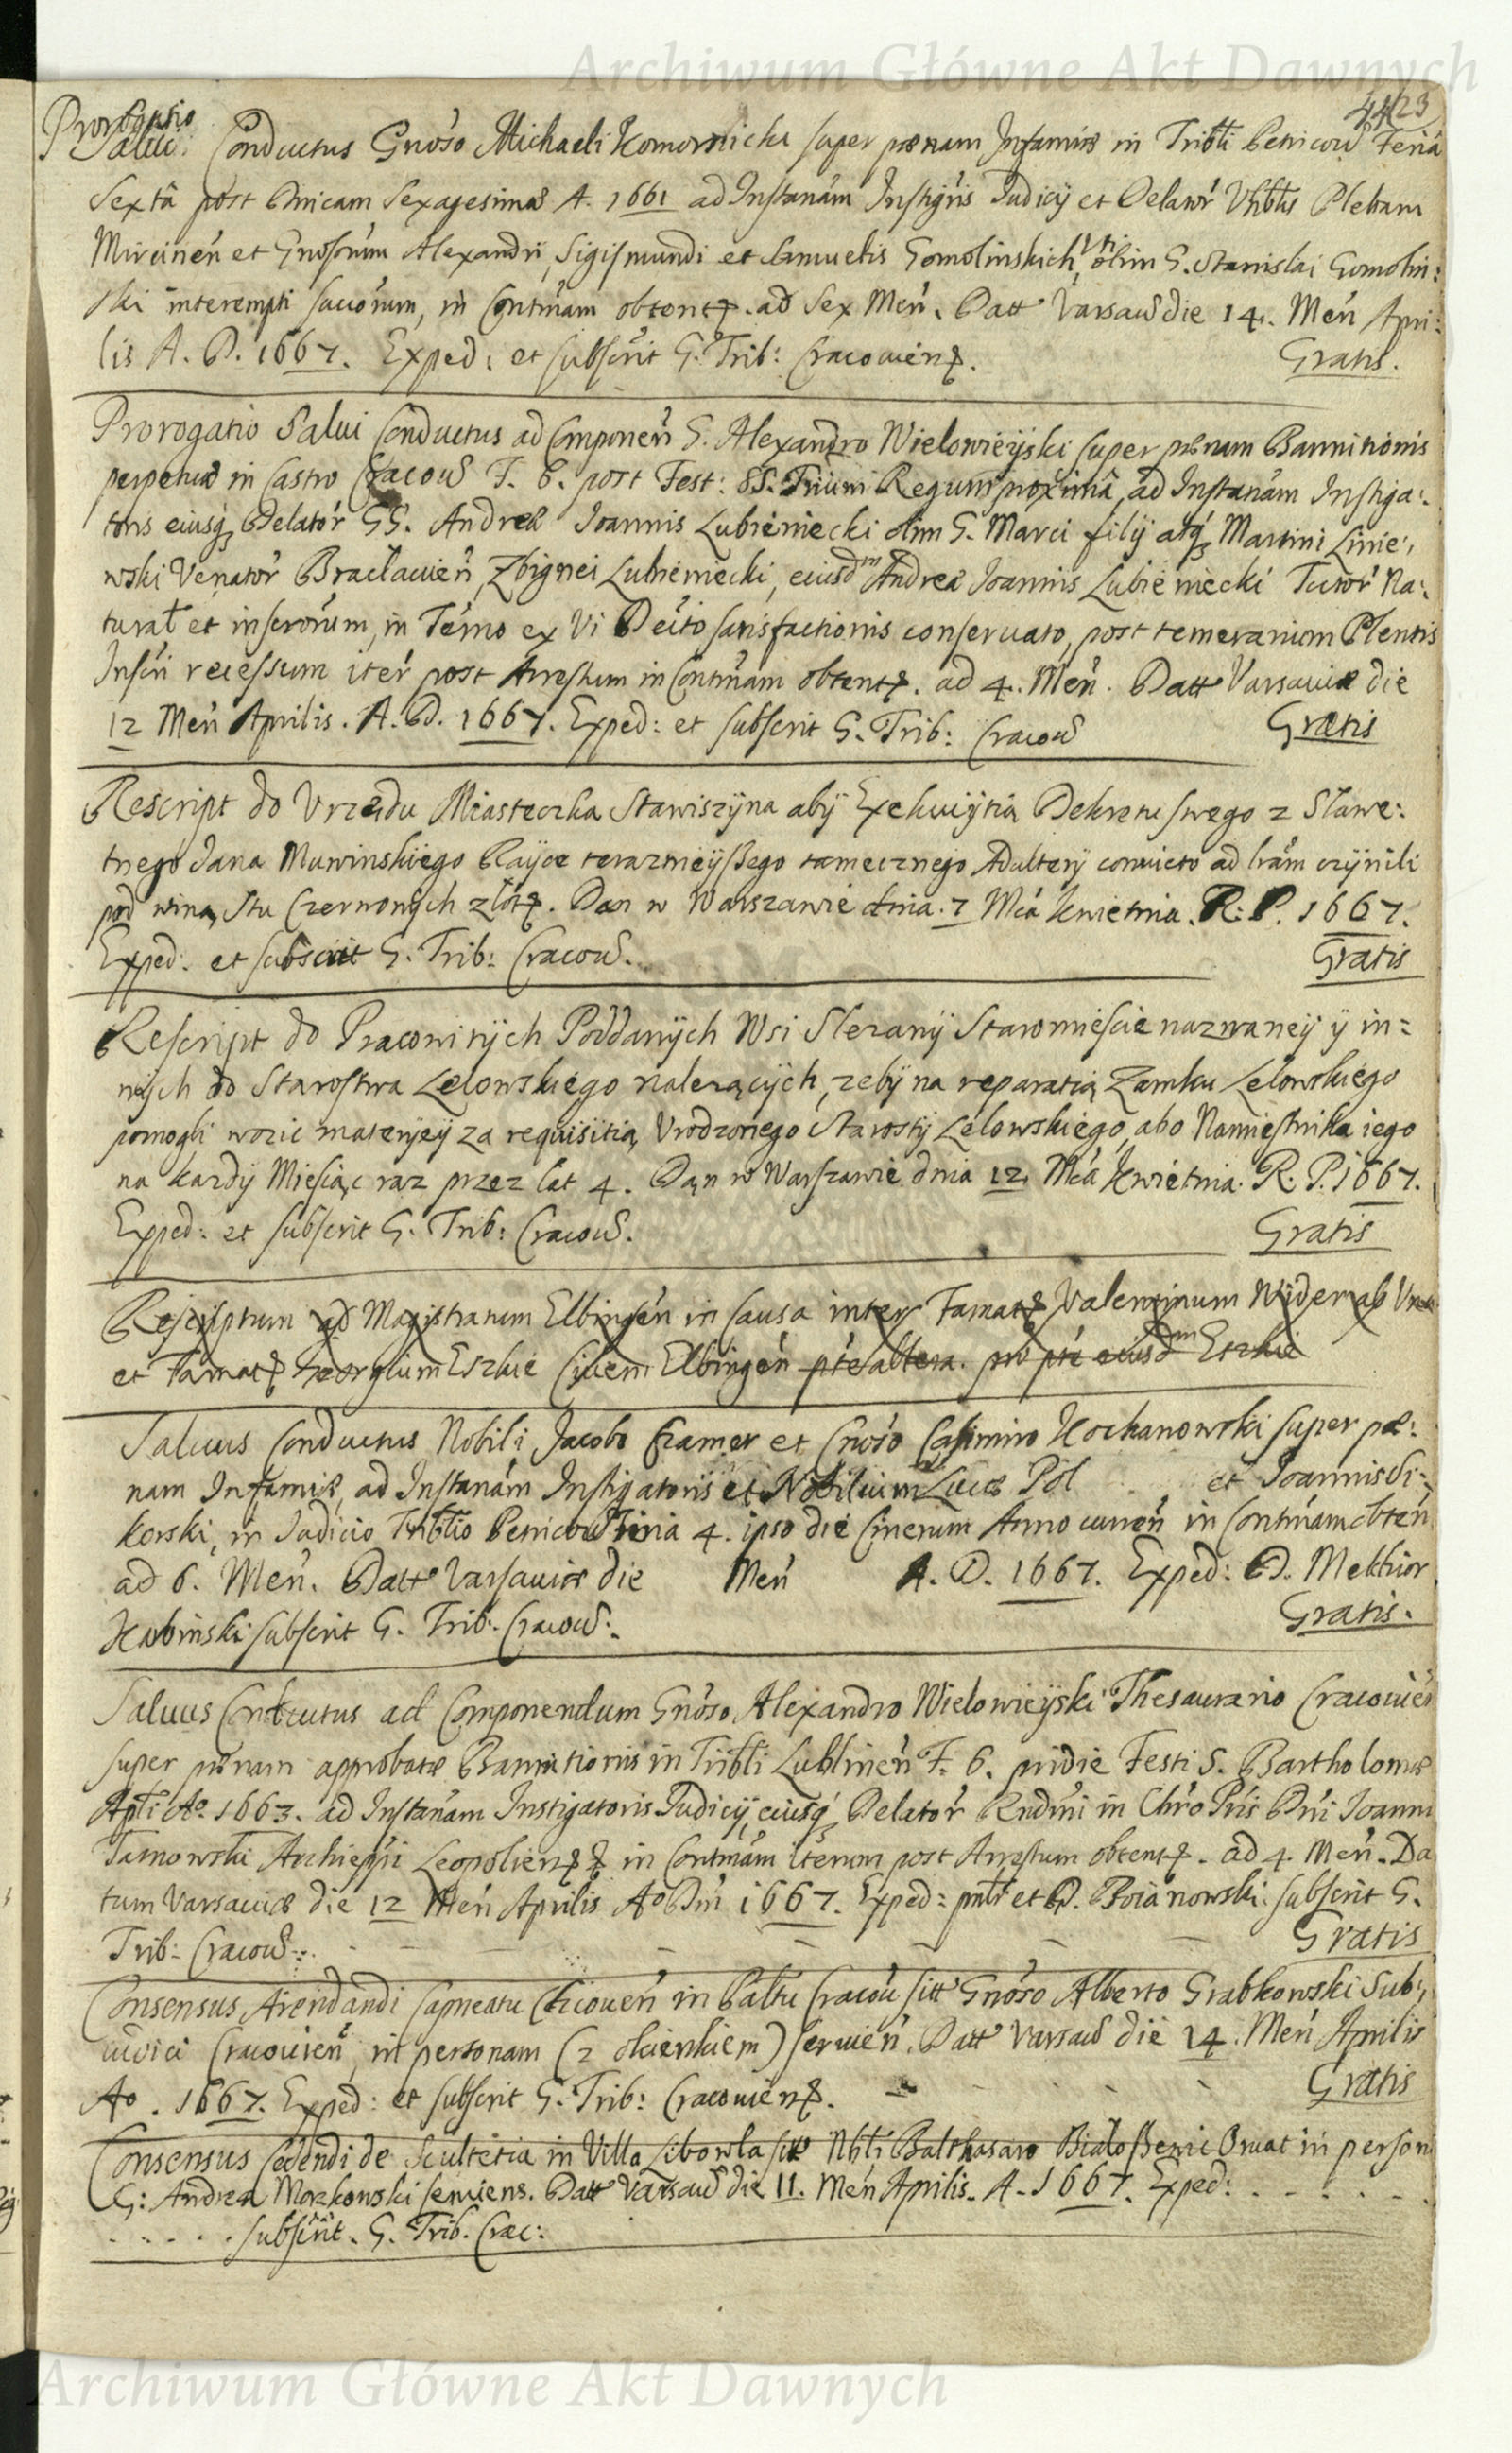 Archiwum Główne Akt Dawnych
4423
Prorogatio
Salui Conductus Gnoso Michaeli Komornicki super pœnam Infamiæ in Tribli Petricoui Feria
Sexta post Dnicam Sexagesimæ A. 1661 ad Instanam Instigris Iudicij et Delator Vhblis Plebani
Mircinen et Gnosorum Alexandri, Sigismundi et Samuelis Gomolinskich, olim G. Stanislai Gomolin:
ski interempti sucorum, in Contmam obtent. ad Sex Men. Datt Varsau die 14. Men Apri:
lis A. D. 1667. Exped: et subscrit G. Trib: Cracouien.
Gratis.
Prorogatio Salui Conductus ad Componen G. Alexandro Wielowieyski super pœnam Bannitionis
perpetuæ in Castro Cracou F. 6. post Fest: SS. Trium Regum proxima, ad Instanam Instiga:
toris eiusq Delator GG. Andreæ Ioannis Lubieniecki olim G. Marci filij atq Martini Linie:
wski Venator Braclauien, Zbignei Lubieniecki, eiusdm Andreæ Ioannis Lubieniecki Tutor Na:
tural et inscrorum, in Termo ex Vi Deito satisfactionis conseruato, post temerarium Plentis
Inscri recessum iter post Arrestum in Contmam obtent. ad 4. Men. Datt Varsauiæ die
12 Men Aprilis. A. D. 1667. Exped: et subscrit G. Trib: Cracou
Gratis
Rescript do Vrzędu Miasteczka Stawiszyna aby Exekuytią Dekretu swego z Sławe:
tnego Jana Muwinskiego Rayce teraznieyszego tamecznego Adultery conuicto ad hram czynili
pod winą stu Czerwonych złot. Dan w Warszawie dnia 7 Mca Kwietnia. R. P. 1667.
Exped: et subscrit G. Trib: Cracou.
Gratis
Rescript do Pracowitych Poddanych Wsi Slezany Staromieście nazwaney y in=
nych do Starostwa Lelowskiego nalezących, zeby na reparatią Zamku Lelowskiego
pomogli wozic materyey za requisitią Vrodzonego Starosty Lelowskiego abo Namiestnika iego
na kazdy Miesiąc raz przez lat 4. Dan w Warszawie dnia 12. Mca Kwietnia. R. P. 1667.
Exped: et subscrit G. Trib: Cracou.
Gratis
Rescriptum ad Magistratum Elbingen in causa inter Famat Valentinum
et Famat Georgium Eszkie Ciuem Elbingen pte altera. pro pte eiusdm Eszkie
Saluus Conductus Nobili Jacobo Cramer et Gnoso Casimiro Kochanowski super pœ:
nam Infamiæ, ad Instanam Instigatoris et Nobilium Lucæ Pol et Ioannis Si:
korski, in Iudicio Triblio Petricou Feria 4. ipso die Cinerum Anno curen in Contmam obten
ad 6. Men. Datt Varsauiæ die Men A. D. 1667. Exped: D. Melchior
subscrit G. Trib: Cracou:.
Gratis.
Saluus Conductus ad Componendum Gnoso Alexandro Wielowieyski Thesaurario Cracouien
super pœnam approbatæ Bannitionis in Tribli Lublinen F. 6. pridie Festi S. Bartholomæ
Apli Ao. 1663. ad Instanam Instigatoris Iudicij, eiusq Delator Rndmi in Chro Pris Dni Ioannis
Tarnowski Archieppi Leopolien in Contmam iterum post Arrestum obtent. ad 4. Men. Da
tum Varsauiæ die 12 Men Aprilis Ao Dni 1667. Exped: et D. Boianowski. subscrit G.
Trib: Cracou.
Gratis
Consensus Arendandi in Palatu Cracou sitt Gnoso Alberto Grabkowski Sub:
iudici Cracouien, in personam (z okienkiem) seruien. Datt Varsau die 14. Men Aprilis
Ao. 1667. Exped: et subscrit G. Trib: Cracouien.
Gratis
Consensus Cedendi de Scultetia in Villa Libowla sitt Nbli Balthasaro in person
G: Andrea Morzkowski seruiens. Datt Varsau die 11. Men Aprilis. A. 1667. Exped: . . . . .
. . . . . subscrit. G. Trib. Crac:
Archiwum Główne Akt Dawnych